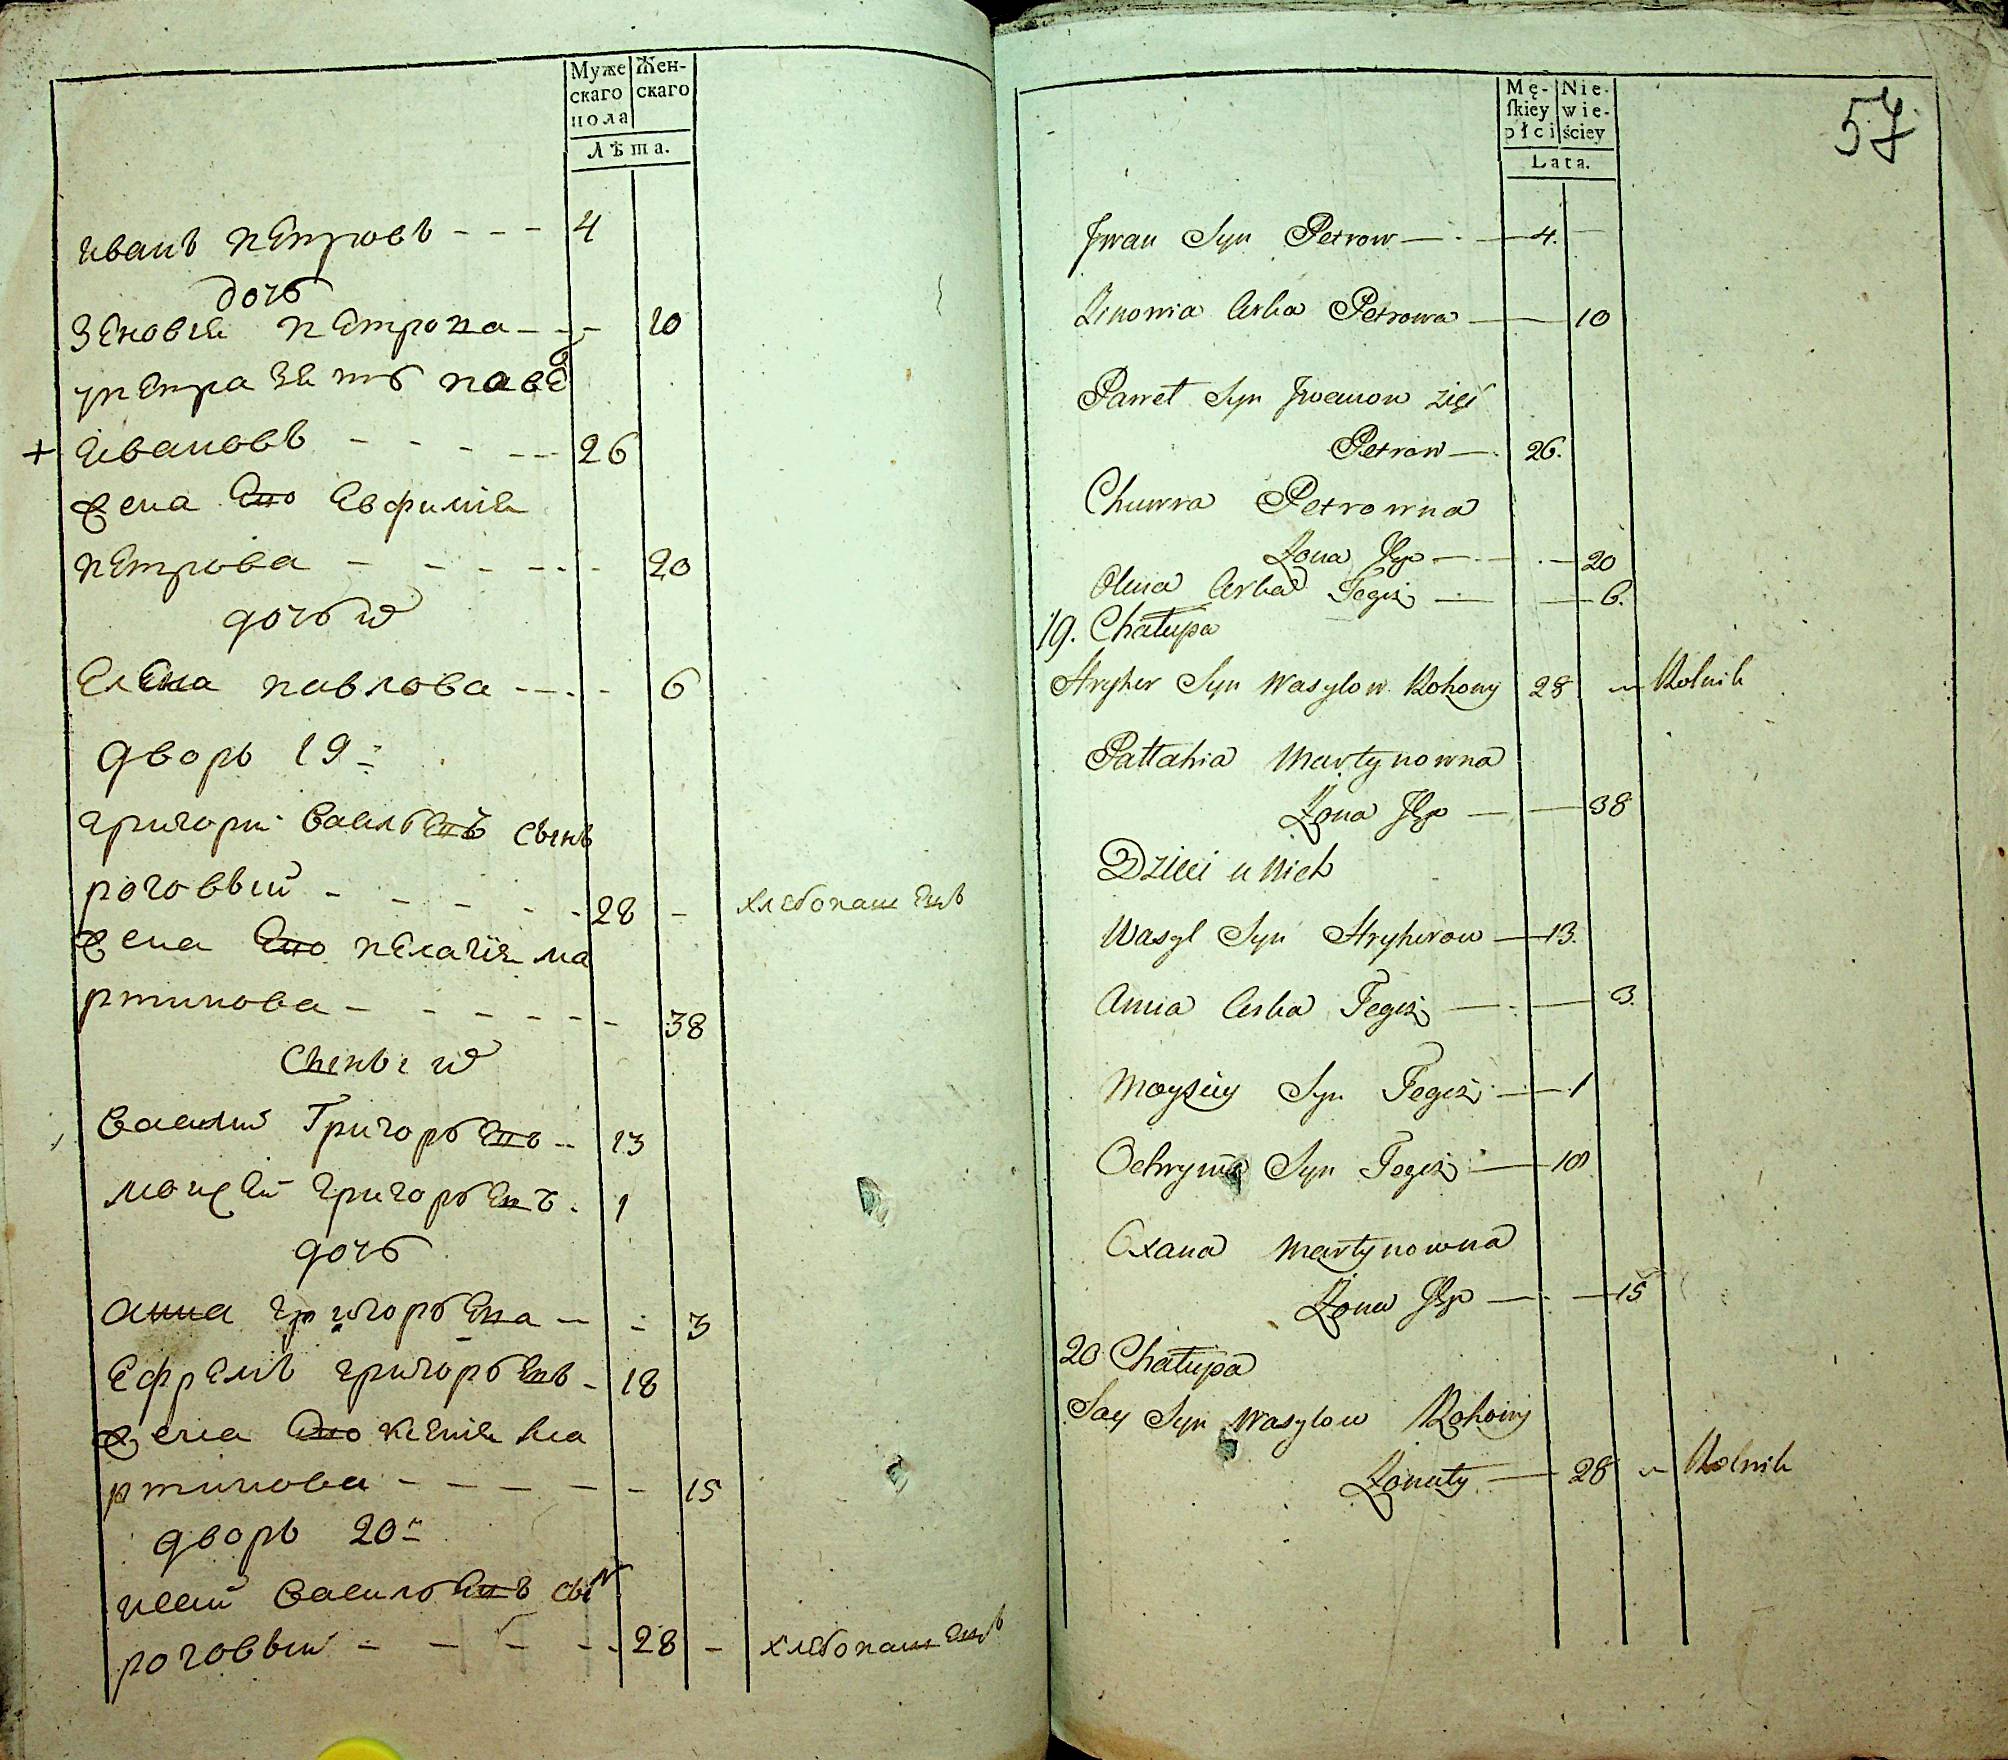 Муже Жен-
скаго скаго
пола
Лѣта.
иванъ петровъ - - - 4
дочь
Зеновия петрова - - - 10
упетра зять паве
ивановъ - - - - - 26
+
жена его Евфимия
петрова - - - - - - 20
дочь ихъ
Елена павлова - - - - 6
дворъ 19
григорий василъевъ сынъ
роговый - - - - - 28 - хлебопашецъ
жена его пелагия ма
ртинова - - - - - - 38
Сыны ихъ
василий Григорьевъ - - 13
моисей григорьевъ - 1
дочь
анна григорьева - - 3
Ефремъ григорьевъ - 18
жена его ксения ма
ртинова - - - - - - 15
дворъ 20
исай василъевъ сынъ
роговый - - - - - 28 - хлебопашецъ
57
Mę- Nie-
ſkiey wie-
płci ściey
Lata.
Jwan Syn Petrow — 4. —
Zinowia Corka Petrowa — 10
Paweł Syn Jwanow zięć
Petrow — 26.
Chuwra Petrowna
Żona Jego — 20
Olena Corka Tegoż — 6.
19. Chałupa
Hryher Syn Wasylow Rohowy 28 Rolnik
Pałłahia Martynowna
Żona Jego — 38
Dzieci u Nich
Wasyl Syn Hryherow — 13.
Anna Corka Tegoż — 3.
Moysiey Syn Tegoż — 1
Ochrym Syn Tegoż — 18
Oxana Martynowna
Żona Jego — 15
20 Chałupa
Say Syn Wasylow Rohowy
Żonaty — 28 Rolnik